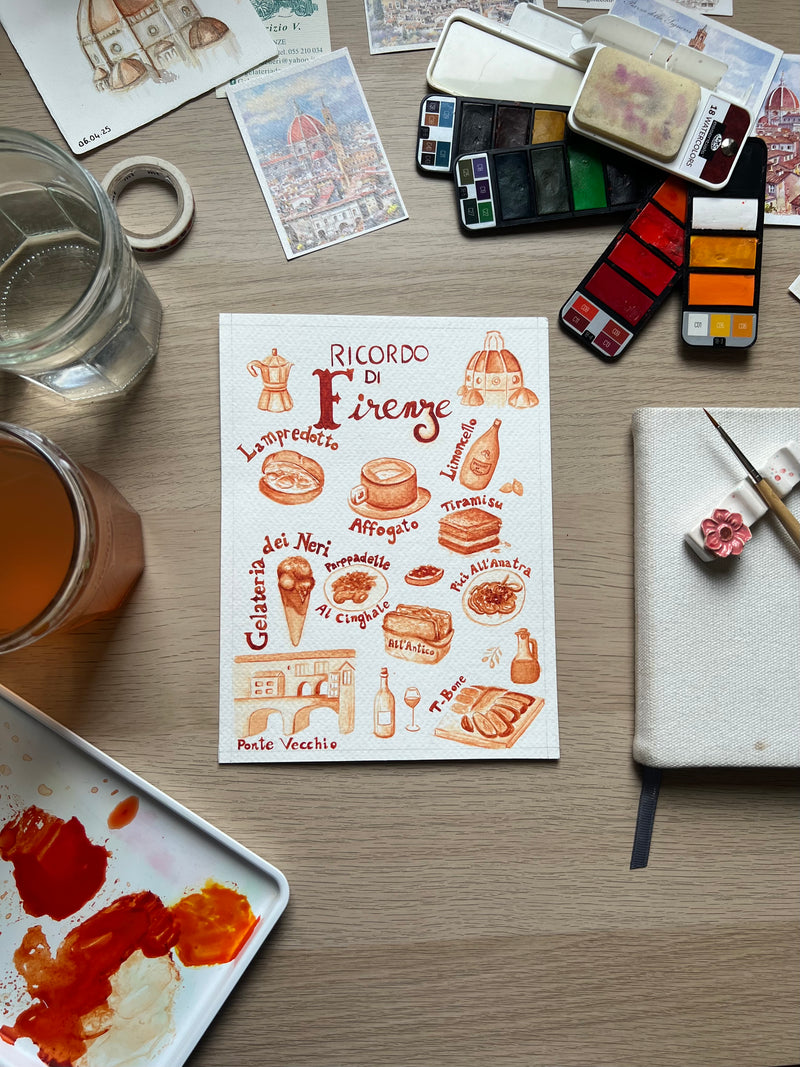 06.04.25
rizio V.
NZE
tel. 055 210 034
18 WATERCOLORS
RICORDO
DI
Firenze
Lampredotto
Limoncello
Affogato
Tiramisu
Gelateria dei Neri
Parppadelle
Al Cinghale
Pici All'Anatra
All'Antico
T-Bone
Ponte Vecchio